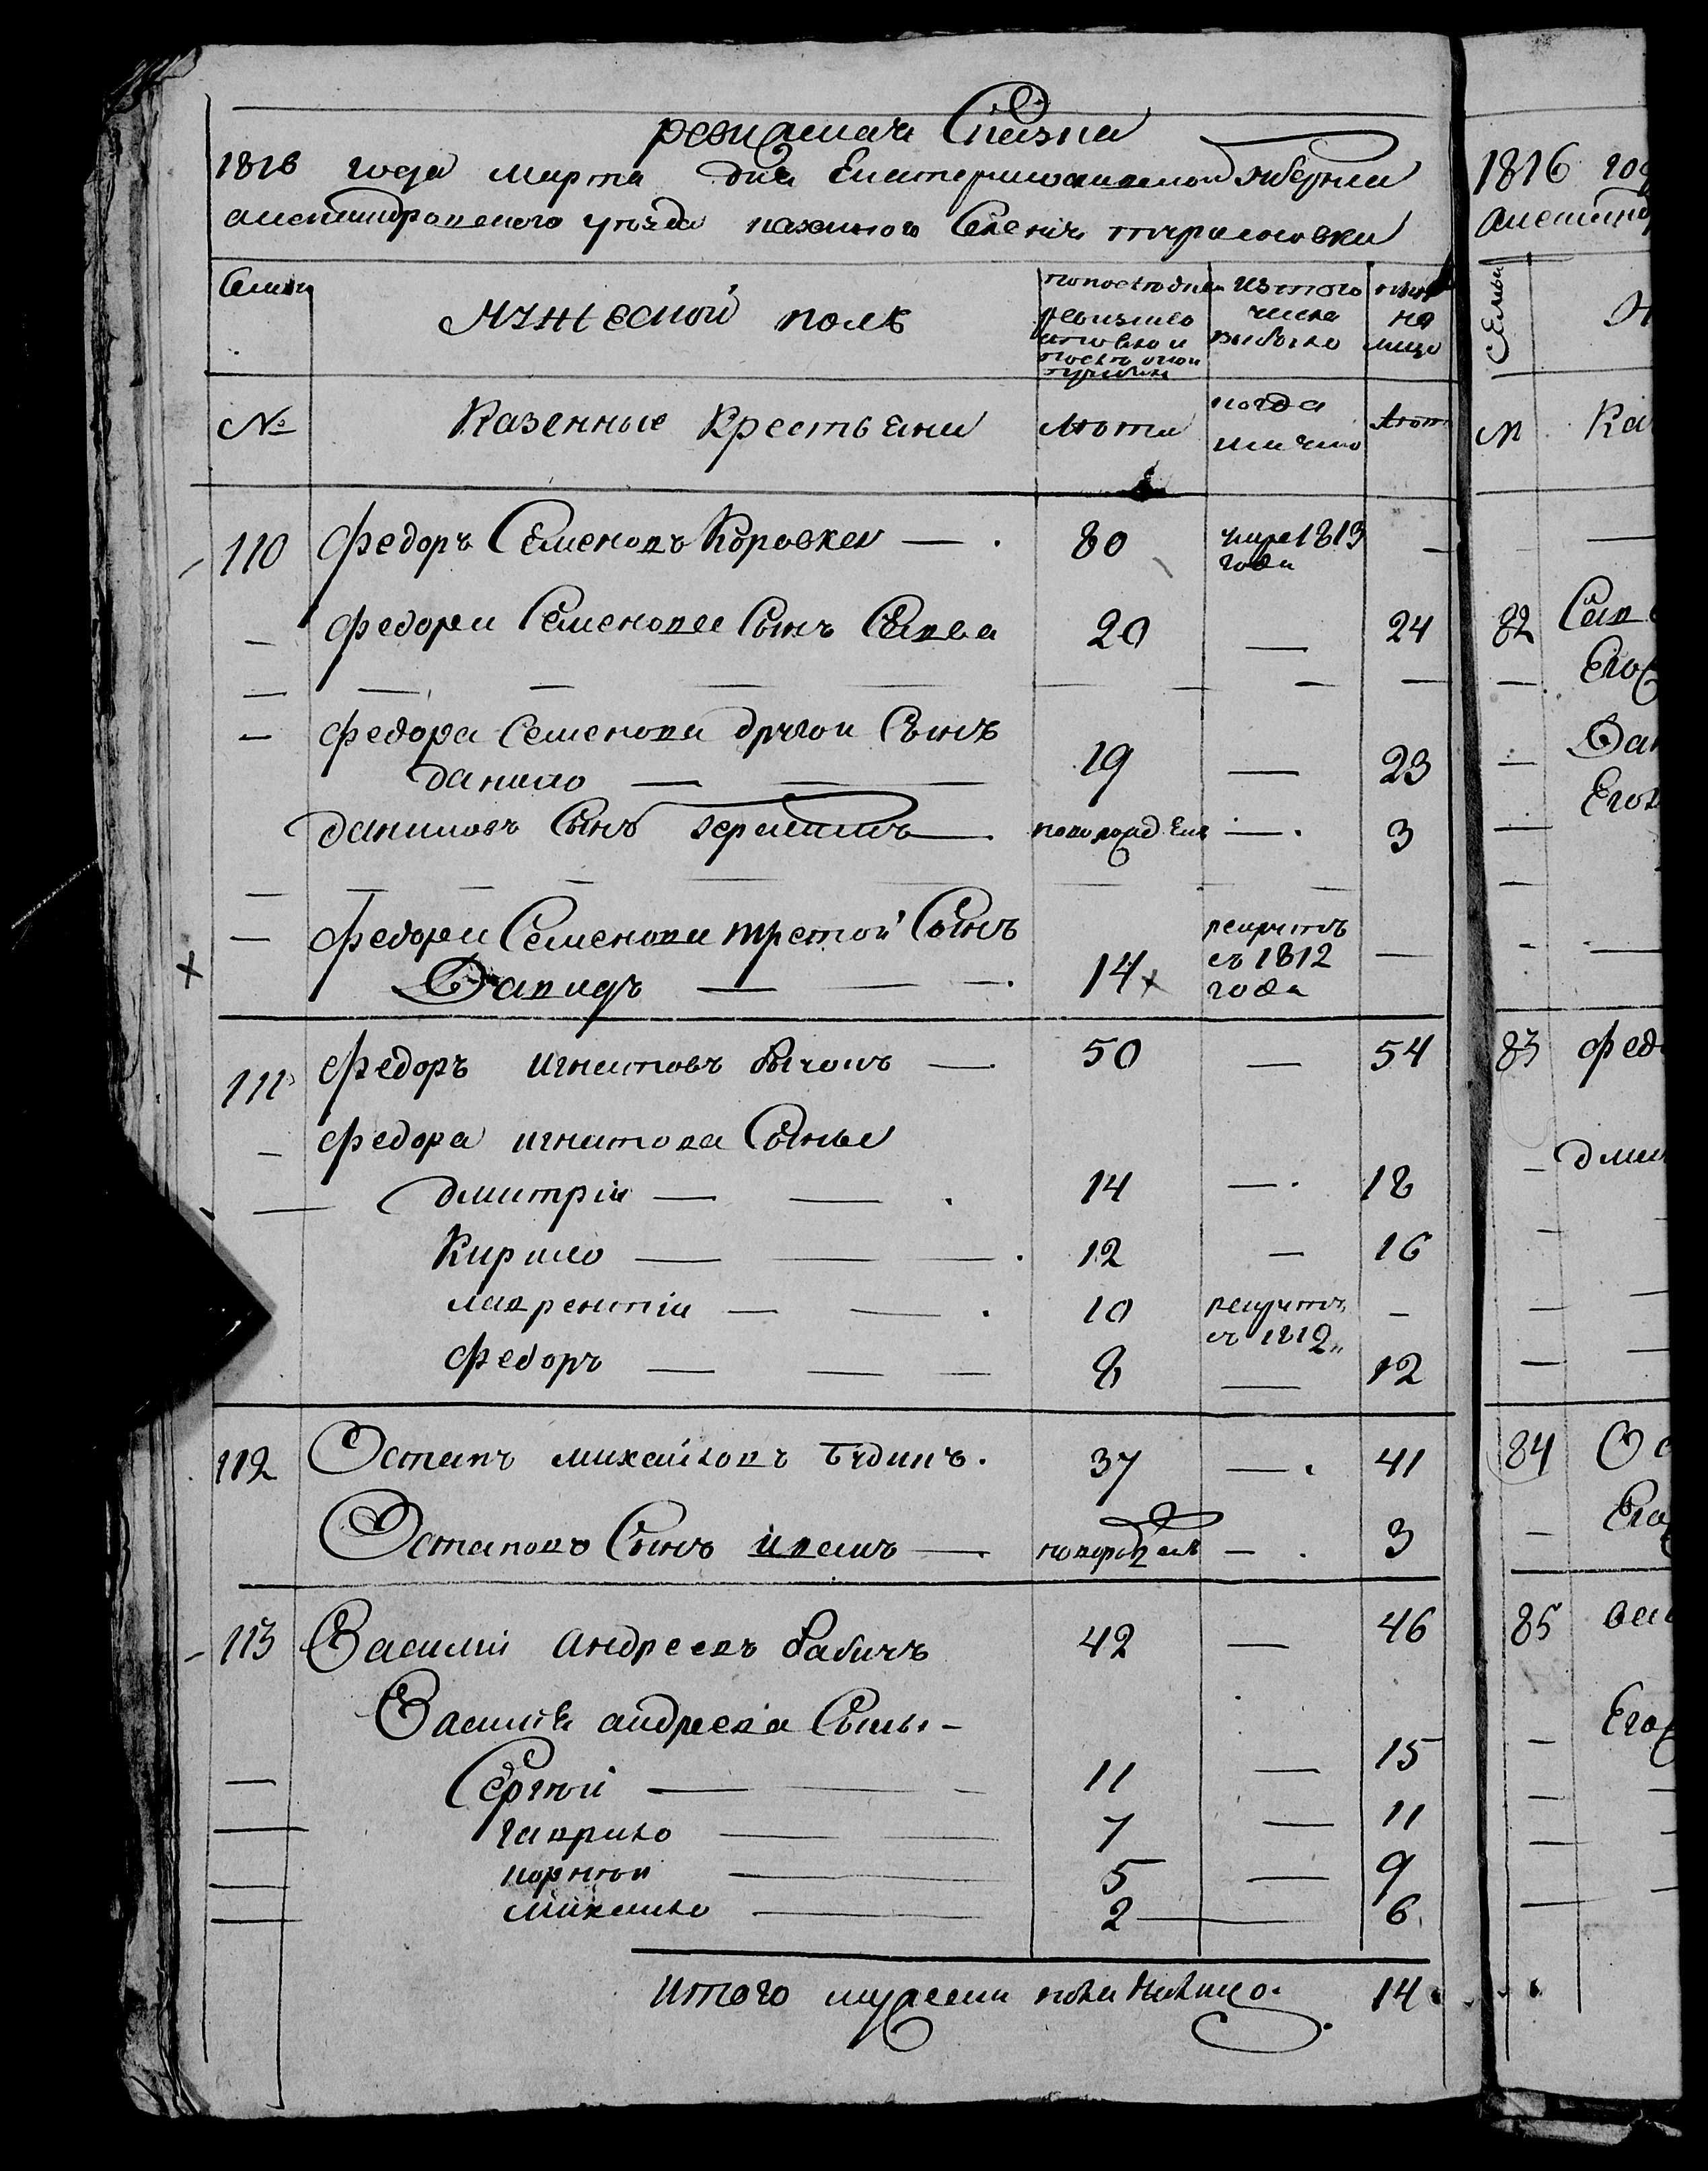 ревизская Сказка
1816 года марта дня Екатеринославской Губернии
александровского уезда казенного Селения тарасовки
Семьи
Мужеской полъ
по последней ревизiи состояло и после оной прибыло
из того числа выбыло
ныне на лицо
№
Казенные Крестьяни
Лета
когда именно
Лета
110 Федоръ Семеновъ Коровка — 80 умре 1813 года —
— Федора Семенова Сынъ Савва 20 — 24
— Федора Семенова другой Сынъ
данило — 19 — 23
даниловъ Сынъ — новорожден — 3
— Федора Семенова третой Сынъ
Давидъ — 14 х рекрутъ въ 1812 года —
111 Федоръ игнатовъ — 50 — 54
— Федора игнатова Сынье
— дмитрiи — 14 — 18
Кирило — 12 — 16
лаврентiи — 10 рекрутъ въ 1812 —
Федоръ — 8 — 12
112 Остапъ михайловъ 37 — 41
Остаповъ Сынъ иванъ — новорожден — 3
113 Василiй андреевъ бабичъ 42 — 46
Василiя андреева Сыны —
— Сергѣй — 11 — 15
— гаврило — 7 — 11
— корнѣи — 5 — 9
— михаило — 2 — 6
итого мужеска пола налицо 14
1816 год
александ
Семьи
№ Каз
82 Сав
Его
Дан
Его
83 Фед
дми
84 Ос
Его
85 вас
Его